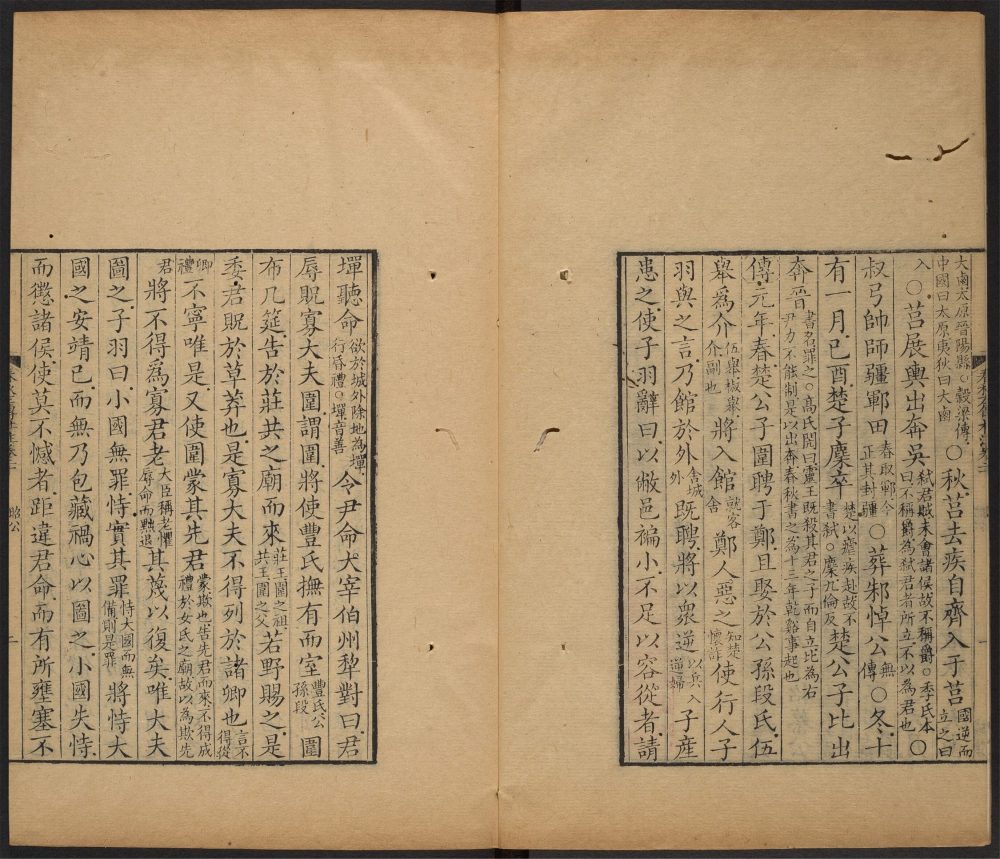 大鹵太原晉陽縣○穀梁傳
中國曰太原夷狄曰大鹵
○秋莒去疾自齊入于莒
國逆而立之曰
入
○莒展輿出奔吳
弑君賊未會諸侯故不稱爵○季氏本
曰不稱爵為弑君者所立不以為君也
○
叔弓帥師疆鄆田
春取鄆今
正其封疆
○葬邾悼公
無傳
○冬十
有一月己酉楚子麇卒
楚以瘧疾赴故不
書弑○麇九倫反
楚公子比出
奔晉
書名罪之○高氏閌曰靈王既殺其君之子而自立比為右
尹力不能制是以出奔春秋書之為十三年乾谿事起也
傳元年春楚公子圍聘于鄭且娶於公孫段氏伍
舉為介
伍舉椒舉
介副也
將入館
就客
舍
鄭人惡之
知楚
懷詐
使行人子
羽與之言乃館於外
舍城
外
既聘將以衆逆
以兵入
逆婦
子產
患之使子羽辭曰以敝邑褊小不足以容從者請
墠聽命
欲於城外除地為墠
行昏禮○墠音善
令尹命大宰伯州犂對曰君
辱貺寡大夫圍謂圍將使豐氏撫有而室
豐氏公
孫段
圍
布几筵告於莊共之廟而來
莊王圍之祖
共王圍之父
若野賜之是
委君貺於草莽也是寡大夫不得列於諸卿也
言不
得從
卿禮
不寧唯是又使圍蒙其先君
蒙欺也告先君而來不得成
禮於女氏之廟故以為欺先
君
將不得為寡君老
大臣稱老懼
辱命而黜退
其蔑以復矣唯大夫
圖之子羽曰小國無罪恃實其罪
恃大國而無
備則是罪
將恃大
國之安靖已而無乃包藏禍心以圖之小國失恃
而懲諸侯使莫不憾者距違君命而有所壅塞不
昭公